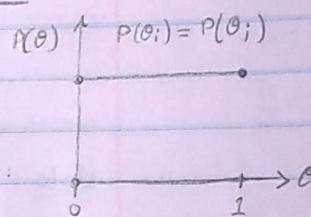 P(θ) P(θᵢ) = P(θⱼ)
θ
0 1